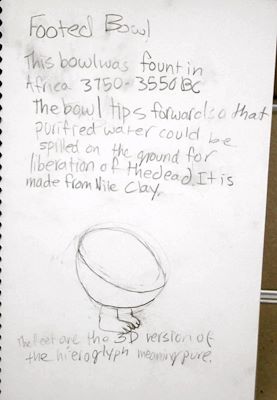 Footed Bowl
This bowl was fount in
Africa 3750-3550 BC
The bowl tips forward so that
purifred water could be
spilled on the ground for
liberation of the dead. It is
made from Nile Clay.
The feet are the 3D version of
the hieroglyph meaning pure.